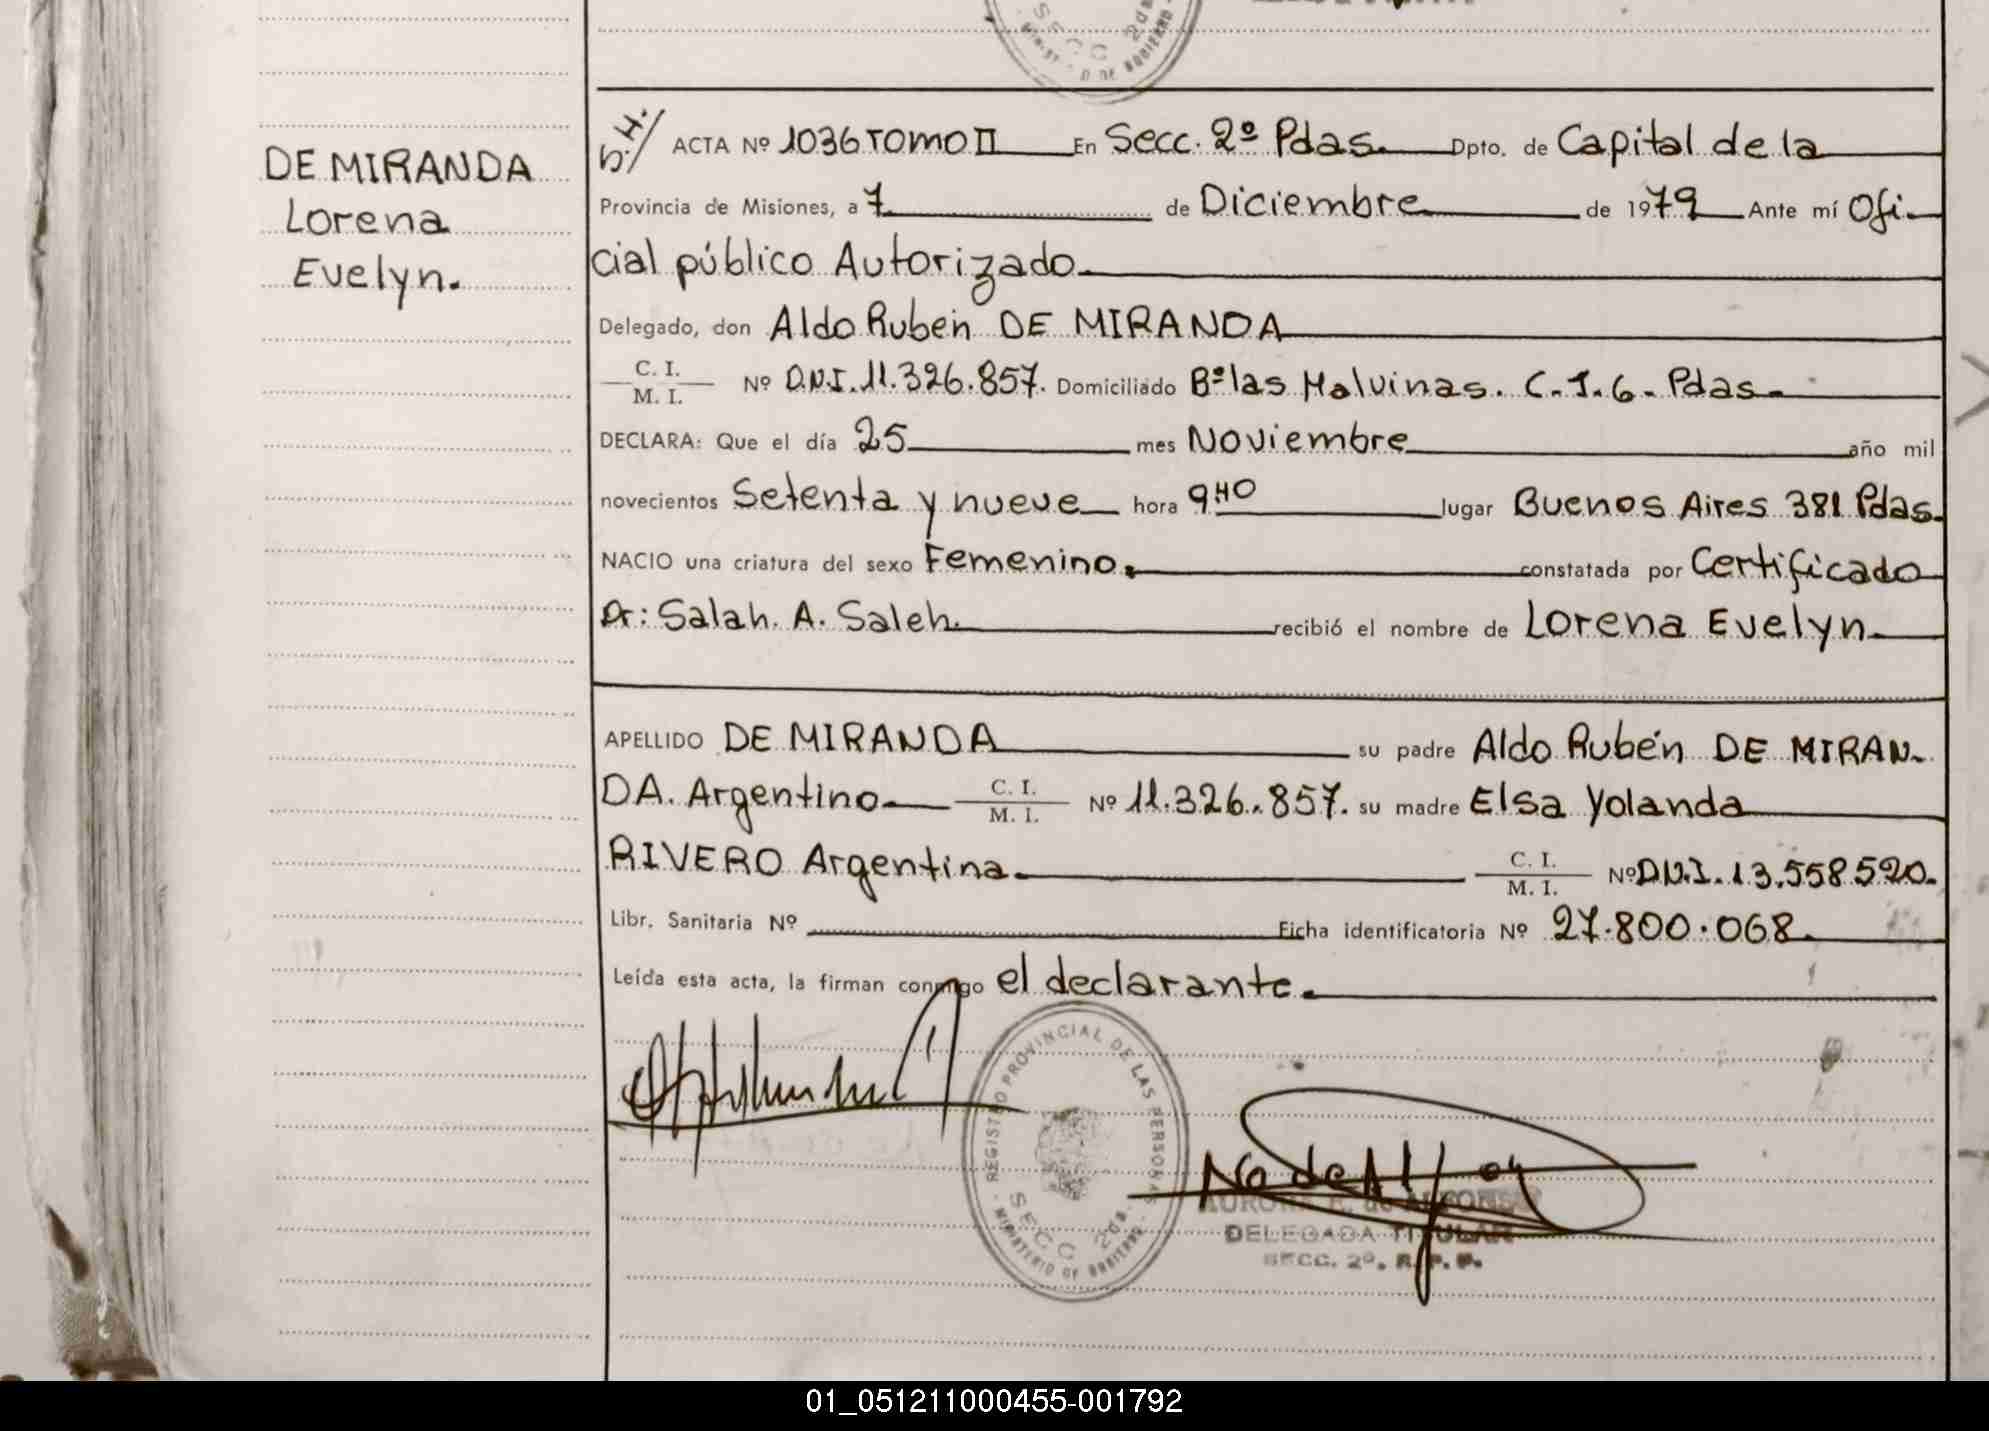 SECC 2da.
DE MIRANDA
Lorena
Evelyn.
ACTA Nº 1036 TOMO II En Secc. 2º Pdas. Dpto. de Capital de la
Provincia de Misiones, a 7 de Diciembre de 1979 Ante mí Ofi-
cial público Autorizado.
Delegado, don Aldo Ruben DE MIRANDA
C. I.
M. I. Nº D.N.I. 11.326.857. Domiciliado Bº las Malvinas. C. I. 6. Pdas.
DECLARA: Que el día 25 mes Noviembre año mil
novecientos Setenta y nueve hora 9 HO lugar Buenos Aires 381 Pdas.
NACIO una criatura del sexo Femenino. constatada por Certificado
Dr: Salah. A. Saleh. recibió el nombre de Lorena Evelyn.
APELLIDO DE MIRANDA su padre Aldo Rubén DE MIRAN-
DA. Argentino C. I.
M. I. Nº 11.326.857. su madre Elsa Yolanda
RIVERO Argentina. C. I.
M. I. Nº D.N.I. 13.558.520.
Libr. Sanitaria Nº Ficha identificatoria Nº 27.800.068.
Leída esta acta, la firman conmigo el declarante.
REGISTRO PROVINCIAL DE LAS PERSONAS
SECC 2da.
MINISTERIO DE GOBIERNO
DELEGADA TITULAR
SECC. 2º. R. P. P.
01_051211000455-001792